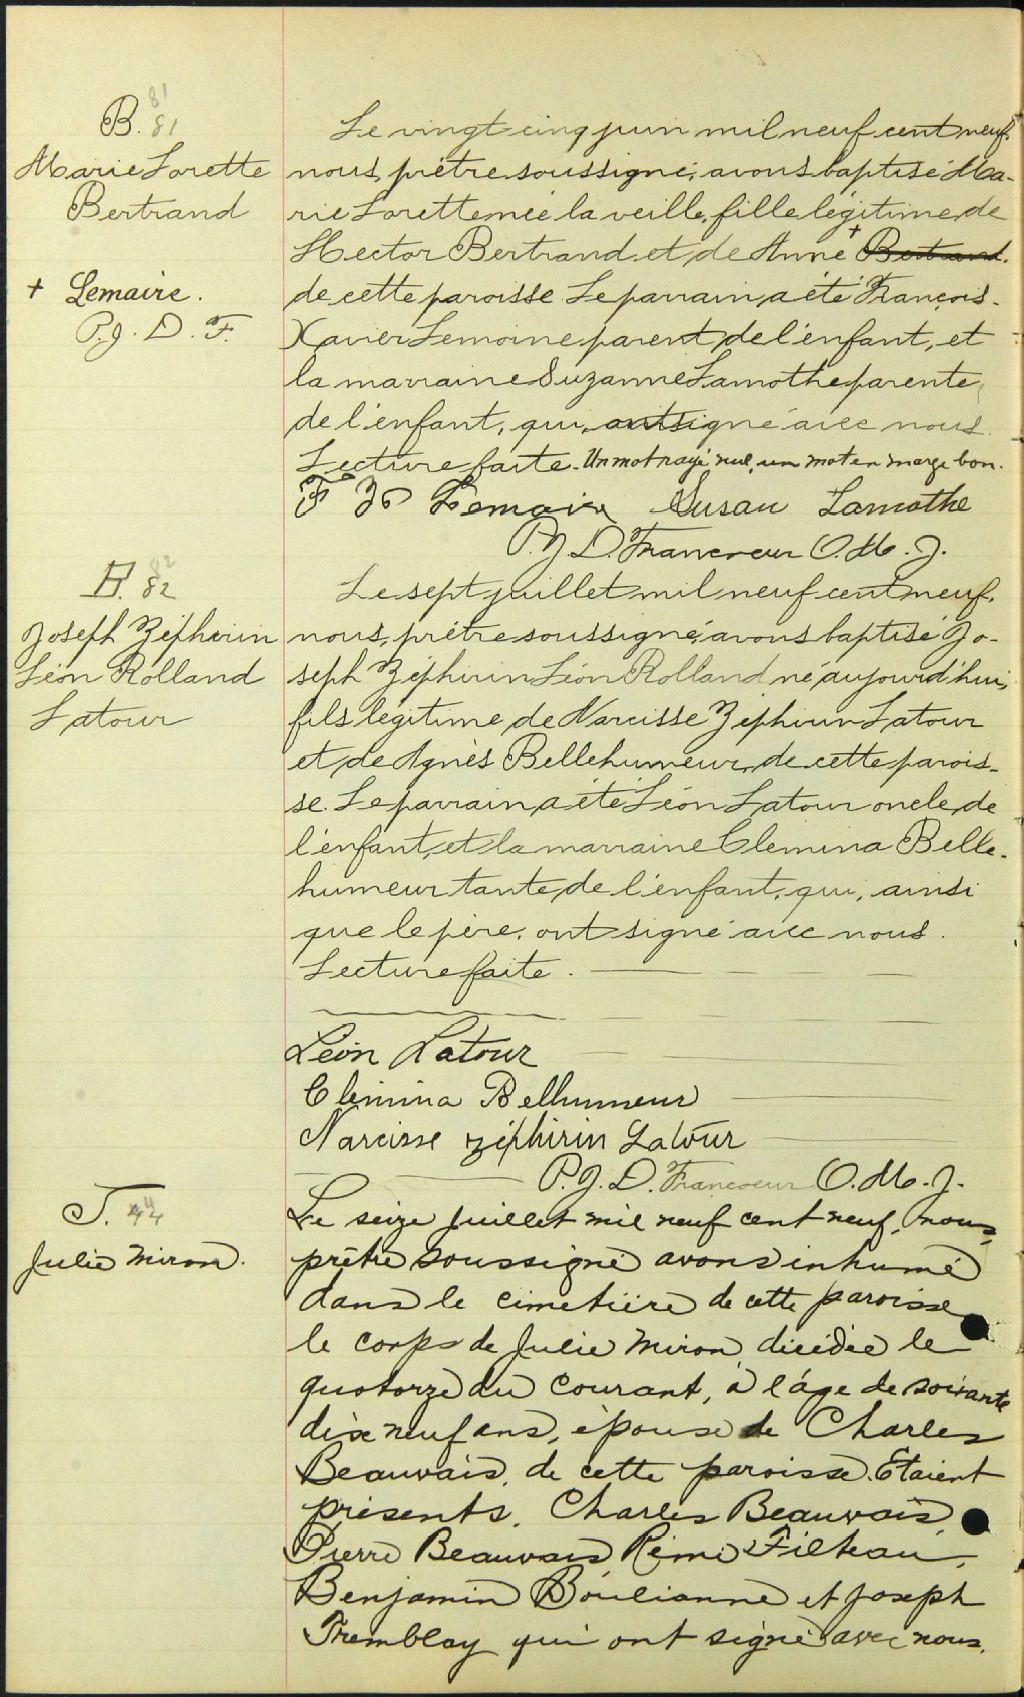 B. 81
81
Marie Lorette
Bertrand
+ Lemaire.
P. J. D. F.
Le vingt-cinq juin mil neuf cent neuf.
nous, prêtre soussigné, avons baptisé Ma-
rie Lorette née la veille, fille légitime de
Hector Bertrand et de Anne + Bertrand.
de cette paroisse Le parrain, a été François-
Xavier Lemoine parent de l'enfant, et
la marraine Suzanne Lamothe parente
de l'enfant, qui, ont signé avec nous.
Lecture faite. Un mot rayé nul, un mot en marge bon.
F X Lemaire Susan Lamothe
P. J. D. Francoeur O.M.J.
B. 82
82
Joseph Zéphirin
Léon Rolland
Latour
Le sept juillet mil neuf cent neuf.
nous, prêtre soussigné, avons baptisé Jo-
seph Zéphirin Léon Rolland né aujourd'hui,
fils légitime de Narcisse Zéphirin Latour
et de Agnès Bellehumeur, de cette parois-
se. Le parrain, a été Léon Latour oncle de
l'enfant, et la marraine Clemina Belle-
humeur tante de l'enfant, qui, ainsi
que le père, ont signé avec nous.
Lecture faite.
Léon Latour
Clemina Belhumeur
Narcisse Zéphirin Latour
P. J. D. Francoeur O.M.J.
S. 44
44
Julie Miron.
Le seize juillet mil neuf cent neuf, nous,
prêtre soussigné avons inhumé
dans le cimetière de cette paroisse
le corps de Julie Miron, décédée le
quatorze du courant, à l'âge de soixante
dix neuf ans, épouse de Charles
Beauvais, de cette paroisse. Etaient
présents, Charles Beauvais,
Pierre Beauvais, Rémi Filteau,
Benjamin Boulianne et Joseph
Tremblay qui ont signé avec nous.